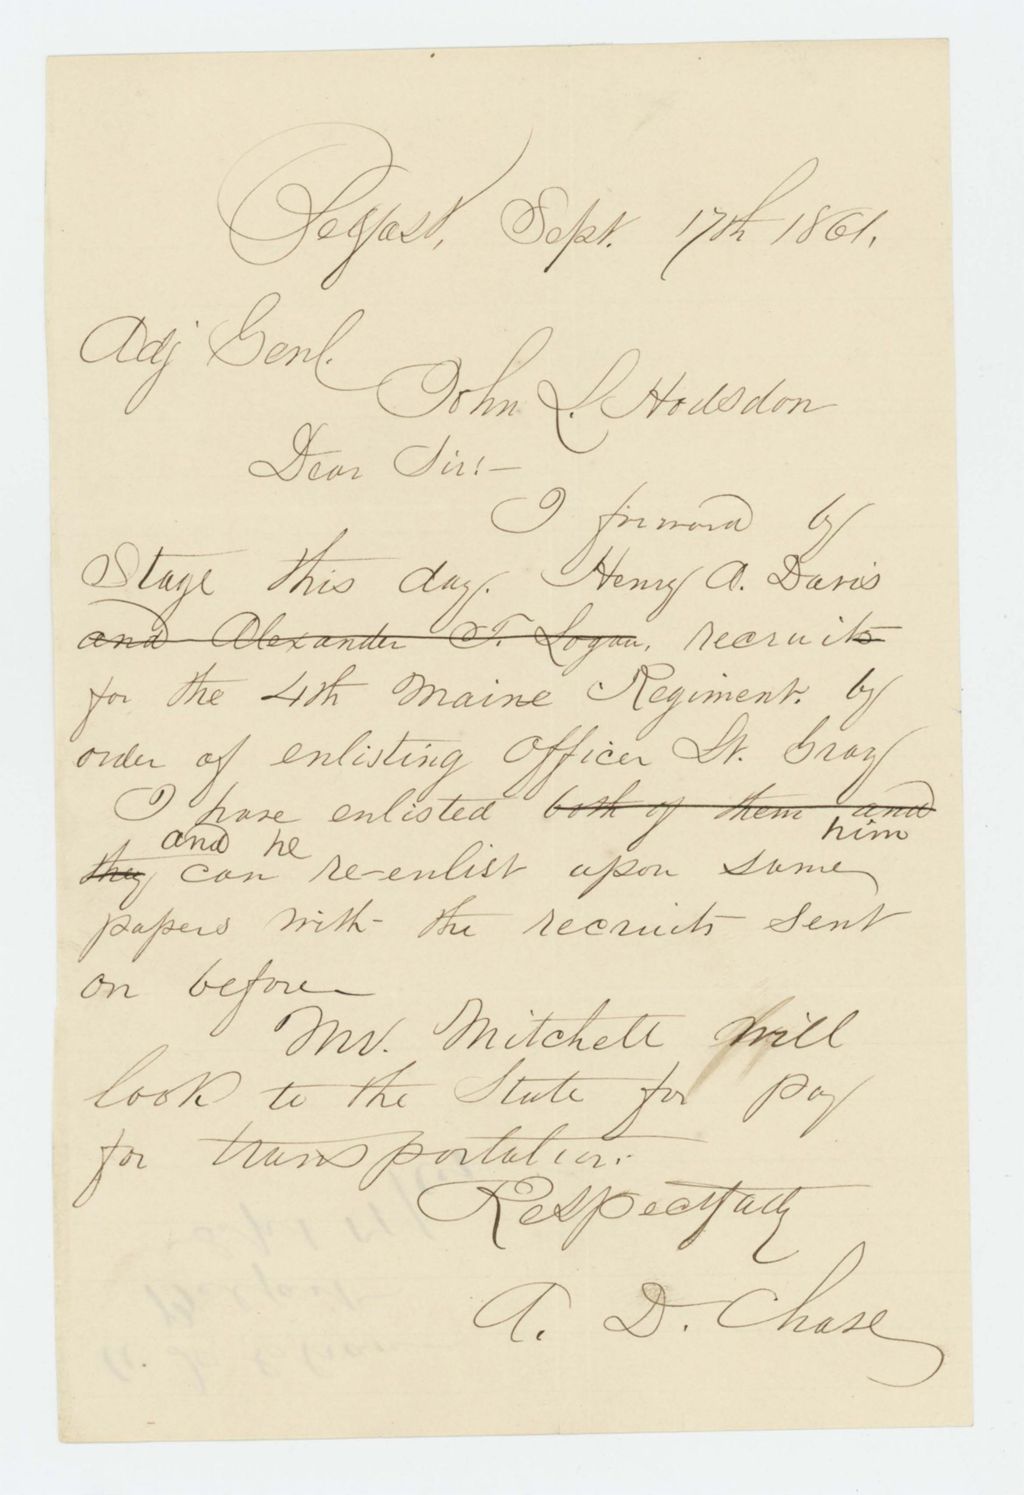 Belfast, Sept. 17th 1861.
Adj Genl.
John L. Hodsdon
Dear Sir:—
I forward by
Stage this day. Henry A. Davis
and Alexander T. Logan, recruits
for the 4th Maine Regiment. by
order of enlisting Officer Lt. Gray
I have enlisted both of them and
and he him
they can re-enlist upon same
papers with the recruits sent
on before
Mr. Mitchell will
look to the State for pay
for transportation.
Respectfully
A. D. Chase